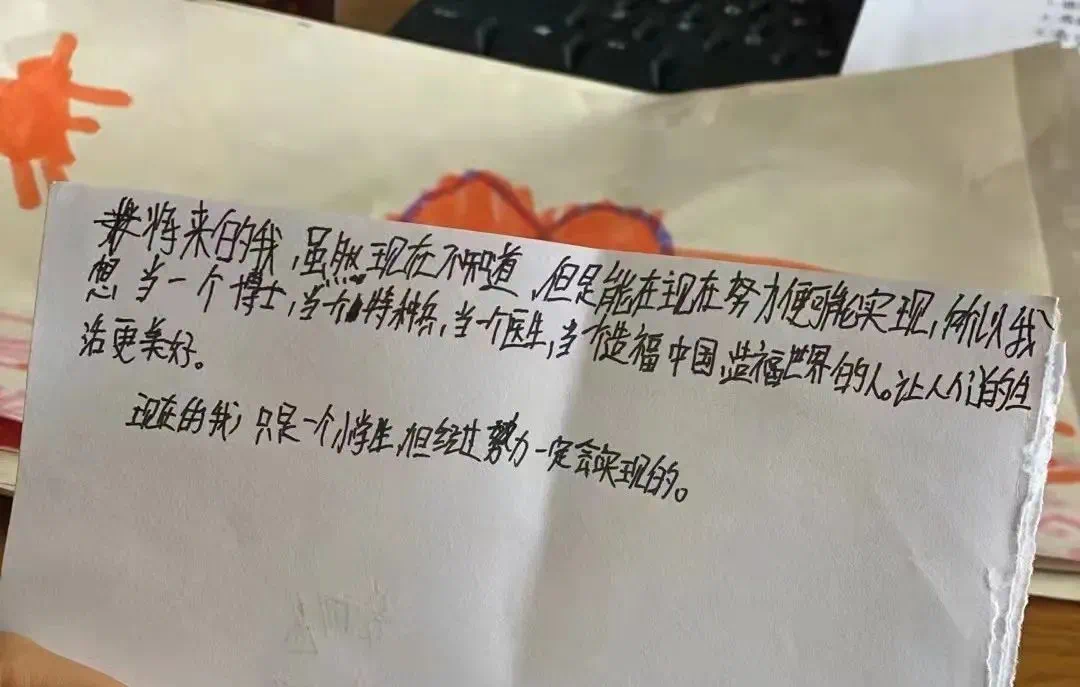 将来的我,虽然现在不知道,但是能在现在努力便可能实现,所以我
想当一个博士,当个特种兵,当一个医生,当个造福中国,造福世界的人。让人们的生
活更美好。
现在的我,只是一个小学生,但经过努力一定会实现的。